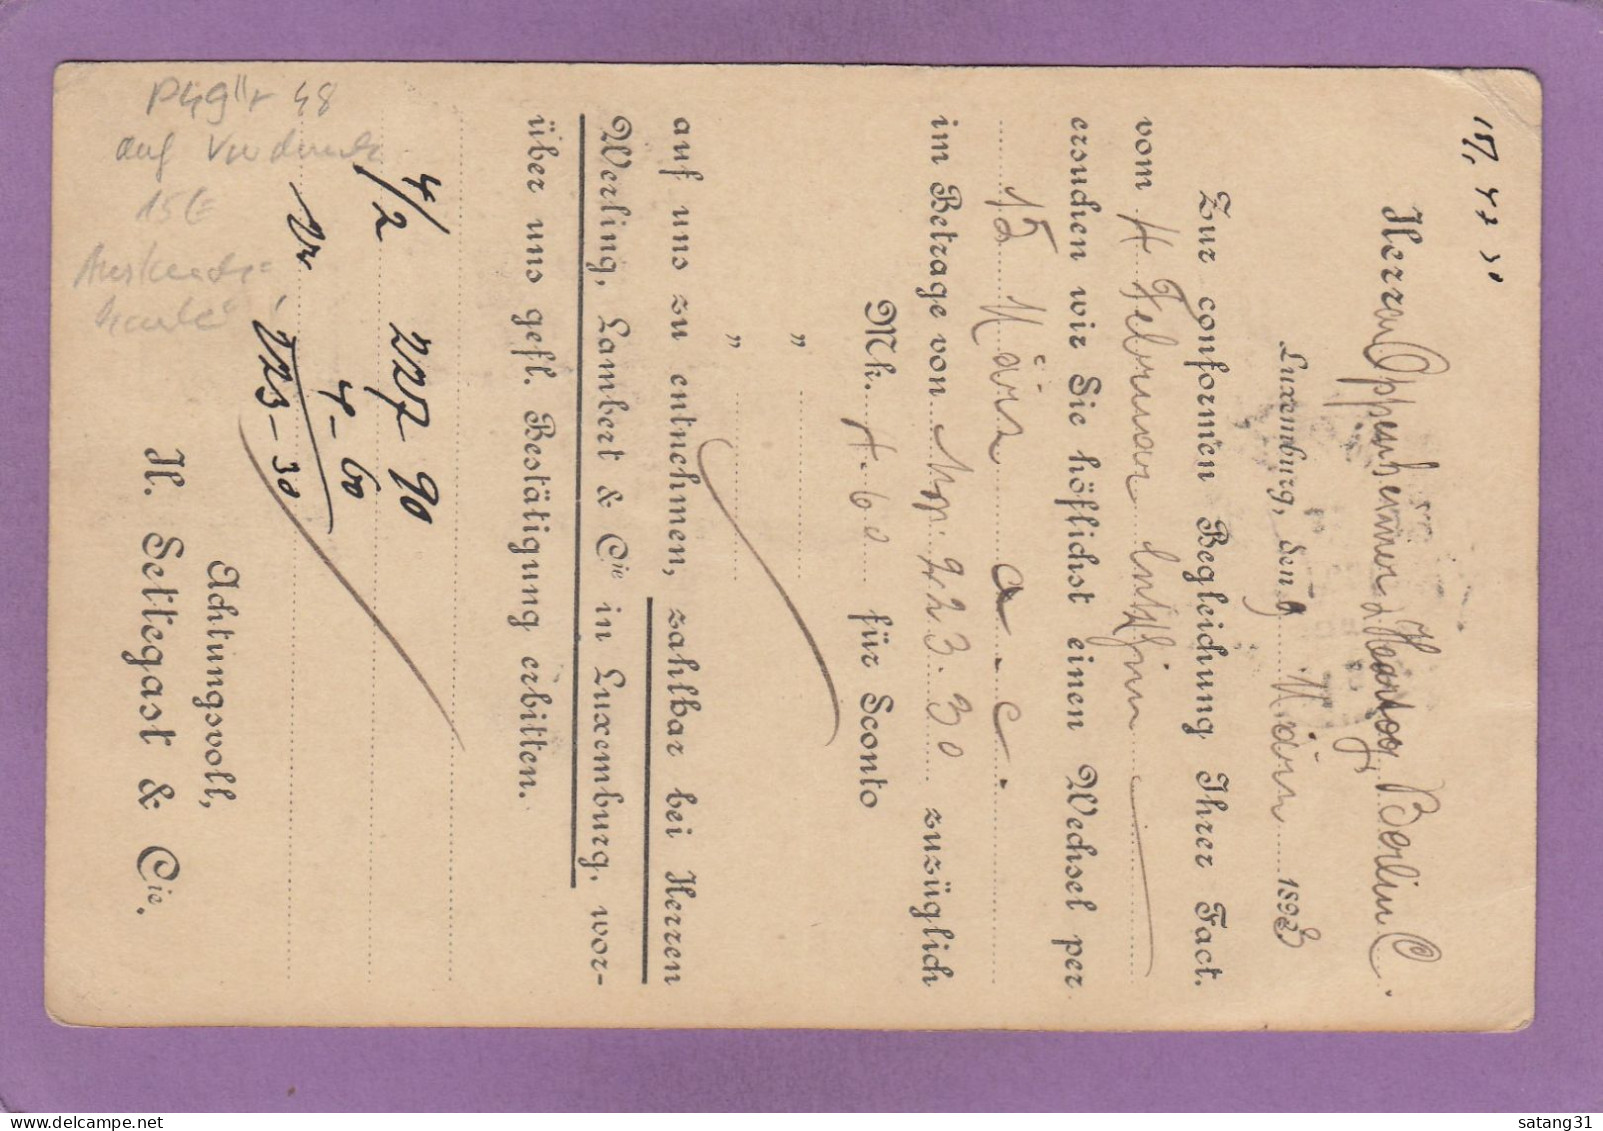 157, 47 30
Herren Oppenheimer & Hartog, Berlin C.
Luxemburg, den 9 März 1893
Zur conformen Begleichung Ihrer Fact.
vom 4 Februar
ersuchen wir Sie höflichst einen Wechsel per
15 März a. c.
im Betrage von Mk. 223.30 zuzüglich
Mk. 4.60 für Sconto
„
„
auf uns zu entnehmen, zahlbar bei Herren
Werling, Lambert & Cie in Luxemburg, wor-
über uns gefl. Bestätigung erbitten.
Achtungsvoll,
H. Settegast & Cie.
4/2 227 90
4-60
223-30
48
auf Vordruck
15€
delcampe.net
satang31